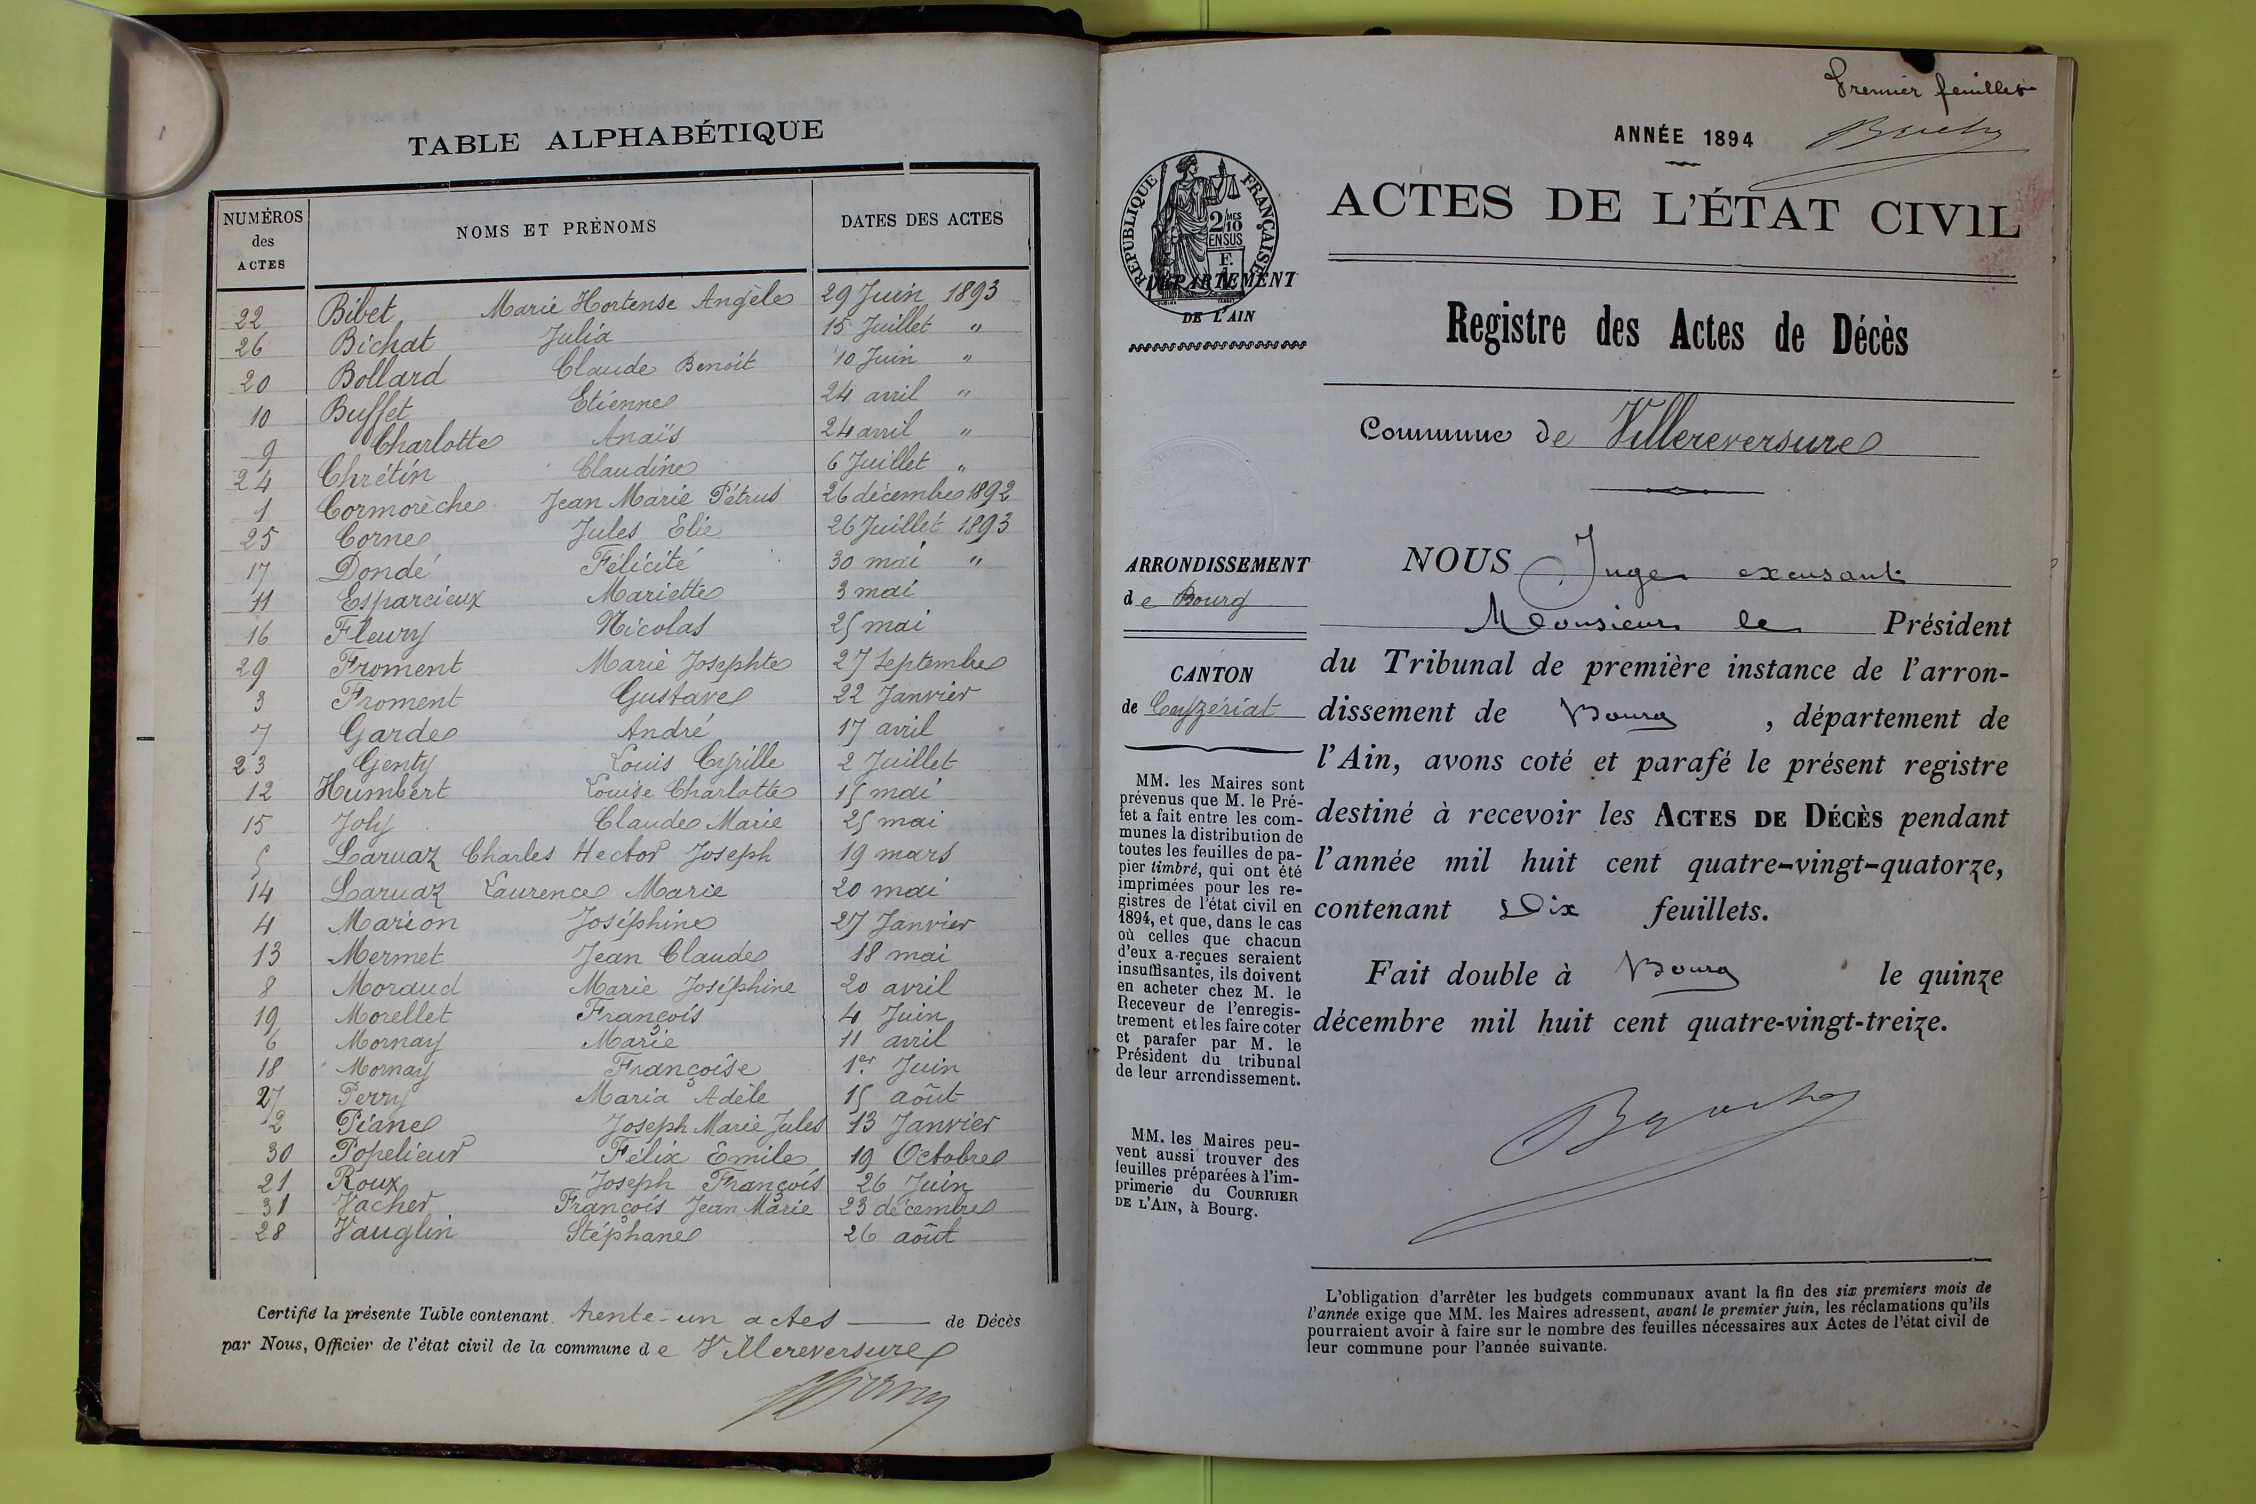 TABLE ALPHABÉTIQUE
NUMÉROS des ACTES NOMS ET PRÉNOMS DATES DES ACTES
22 Bibet Marie Hortense Angèle 29 Juin 1893
26 Bichat Julia 15 Juillet "
20 Bollard Claude Benoit 10 Juin "
10 Buffet Etienne 24 avril "
9 Charlotte Anaïs 24 avril "
24 Chrétin Claudine 6 Juillet "
1 Cormorèche Jean Marie Pétrus 26 décembre 1892
25 Corne Jules Elie 26 Juillet 1893
17 Dondé Félicité 30 mai "
11 Esparcieux Mariette 3 mai
16 Fleury Nicolas 25 mai
29 Froment Marie Josephte 27 Septembre
3 Froment Gustave 22 Janvier
7 Garde André 17 avril
23 Genty Louis Cyrille 2 Juillet
12 Humbert Louise Charlotte 15 mai
15 Joly Claude Marie 25 mai
5 Laruaz Charles Hector Joseph 19 mars
14 Laruaz Laurence Marie 20 mai
4 Marion Joséphine 27 Janvier
13 Mermet Jean Claude 18 mai
8 Moraud Marie Joséphine 20 avril
19 Morellet François 4 Juin
6 Mornay Marie 11 avril
18 Mornay Françoise 1er Juin
27 Perry Maria Adèle 15 août
2 Piane Joseph Marie Jules 13 Janvier
30 Popelieur Félix Emile 19 Octobre
21 Roux Joseph François 26 Juin
31 Vacher François Jean Marie 23 décembre
28 Vauglin Stéphane 26 août
Certifié la présente Table contenant trente-un actes de Décès
par Nous, Officier de l'état civil de la commune de Villereversure
Premier feuillet
ANNÉE 1894
RÉPUBLIQUE FRANÇAISE
2/10 MES
EN SUS
DÉPARTEMENT
DE L'AIN
ACTES DE L'ÉTAT CIVIL
Registre des Actes de Décès
Commune de Villereversure
ARRONDISSEMENT
de Bourg
CANTON
de Ceyzériat
MM. les Maires sont
prévenus que M. le Pré-
fet a fait entre les com-
munes la distribution de
toutes les feuilles de pa-
pier timbré, qui ont été
imprimées pour les re-
gistres de l'état civil en
1894, et que, dans le cas
où celles que chacun
d'eux a reçues seraient
insuffisantes, ils doivent
en acheter chez M. le
Receveur de l'enregis-
trement et les faire coter
et parafer par M. le
Président du tribunal
de leur arrondissement.
MM. les Maires peu-
vent aussi trouver des
feuilles préparées à l'im-
primerie du COURRIER
DE L'AIN, à Bourg.
NOUS Juge excusant
Monsieur le Président
du Tribunal de première instance de l'arron-
dissement de Bourg, département de
l'Ain, avons coté et parafé le présent registre
destiné à recevoir les ACTES DE DÉCÈS pendant
l'année mil huit cent quatre-vingt-quatorze,
contenant Dix feuillets.
Fait double à Bourg le quinze
décembre mil huit cent quatre-vingt-treize.
L'obligation d'arrêter les budgets communaux avant la fin des six premiers mois de
l'année exige que MM. les Maires adressent, avant le premier juin, les réclamations qu'ils
pourraient avoir à faire sur le nombre des feuilles nécessaires aux Actes de l'état civil de
leur commune pour l'année suivante.